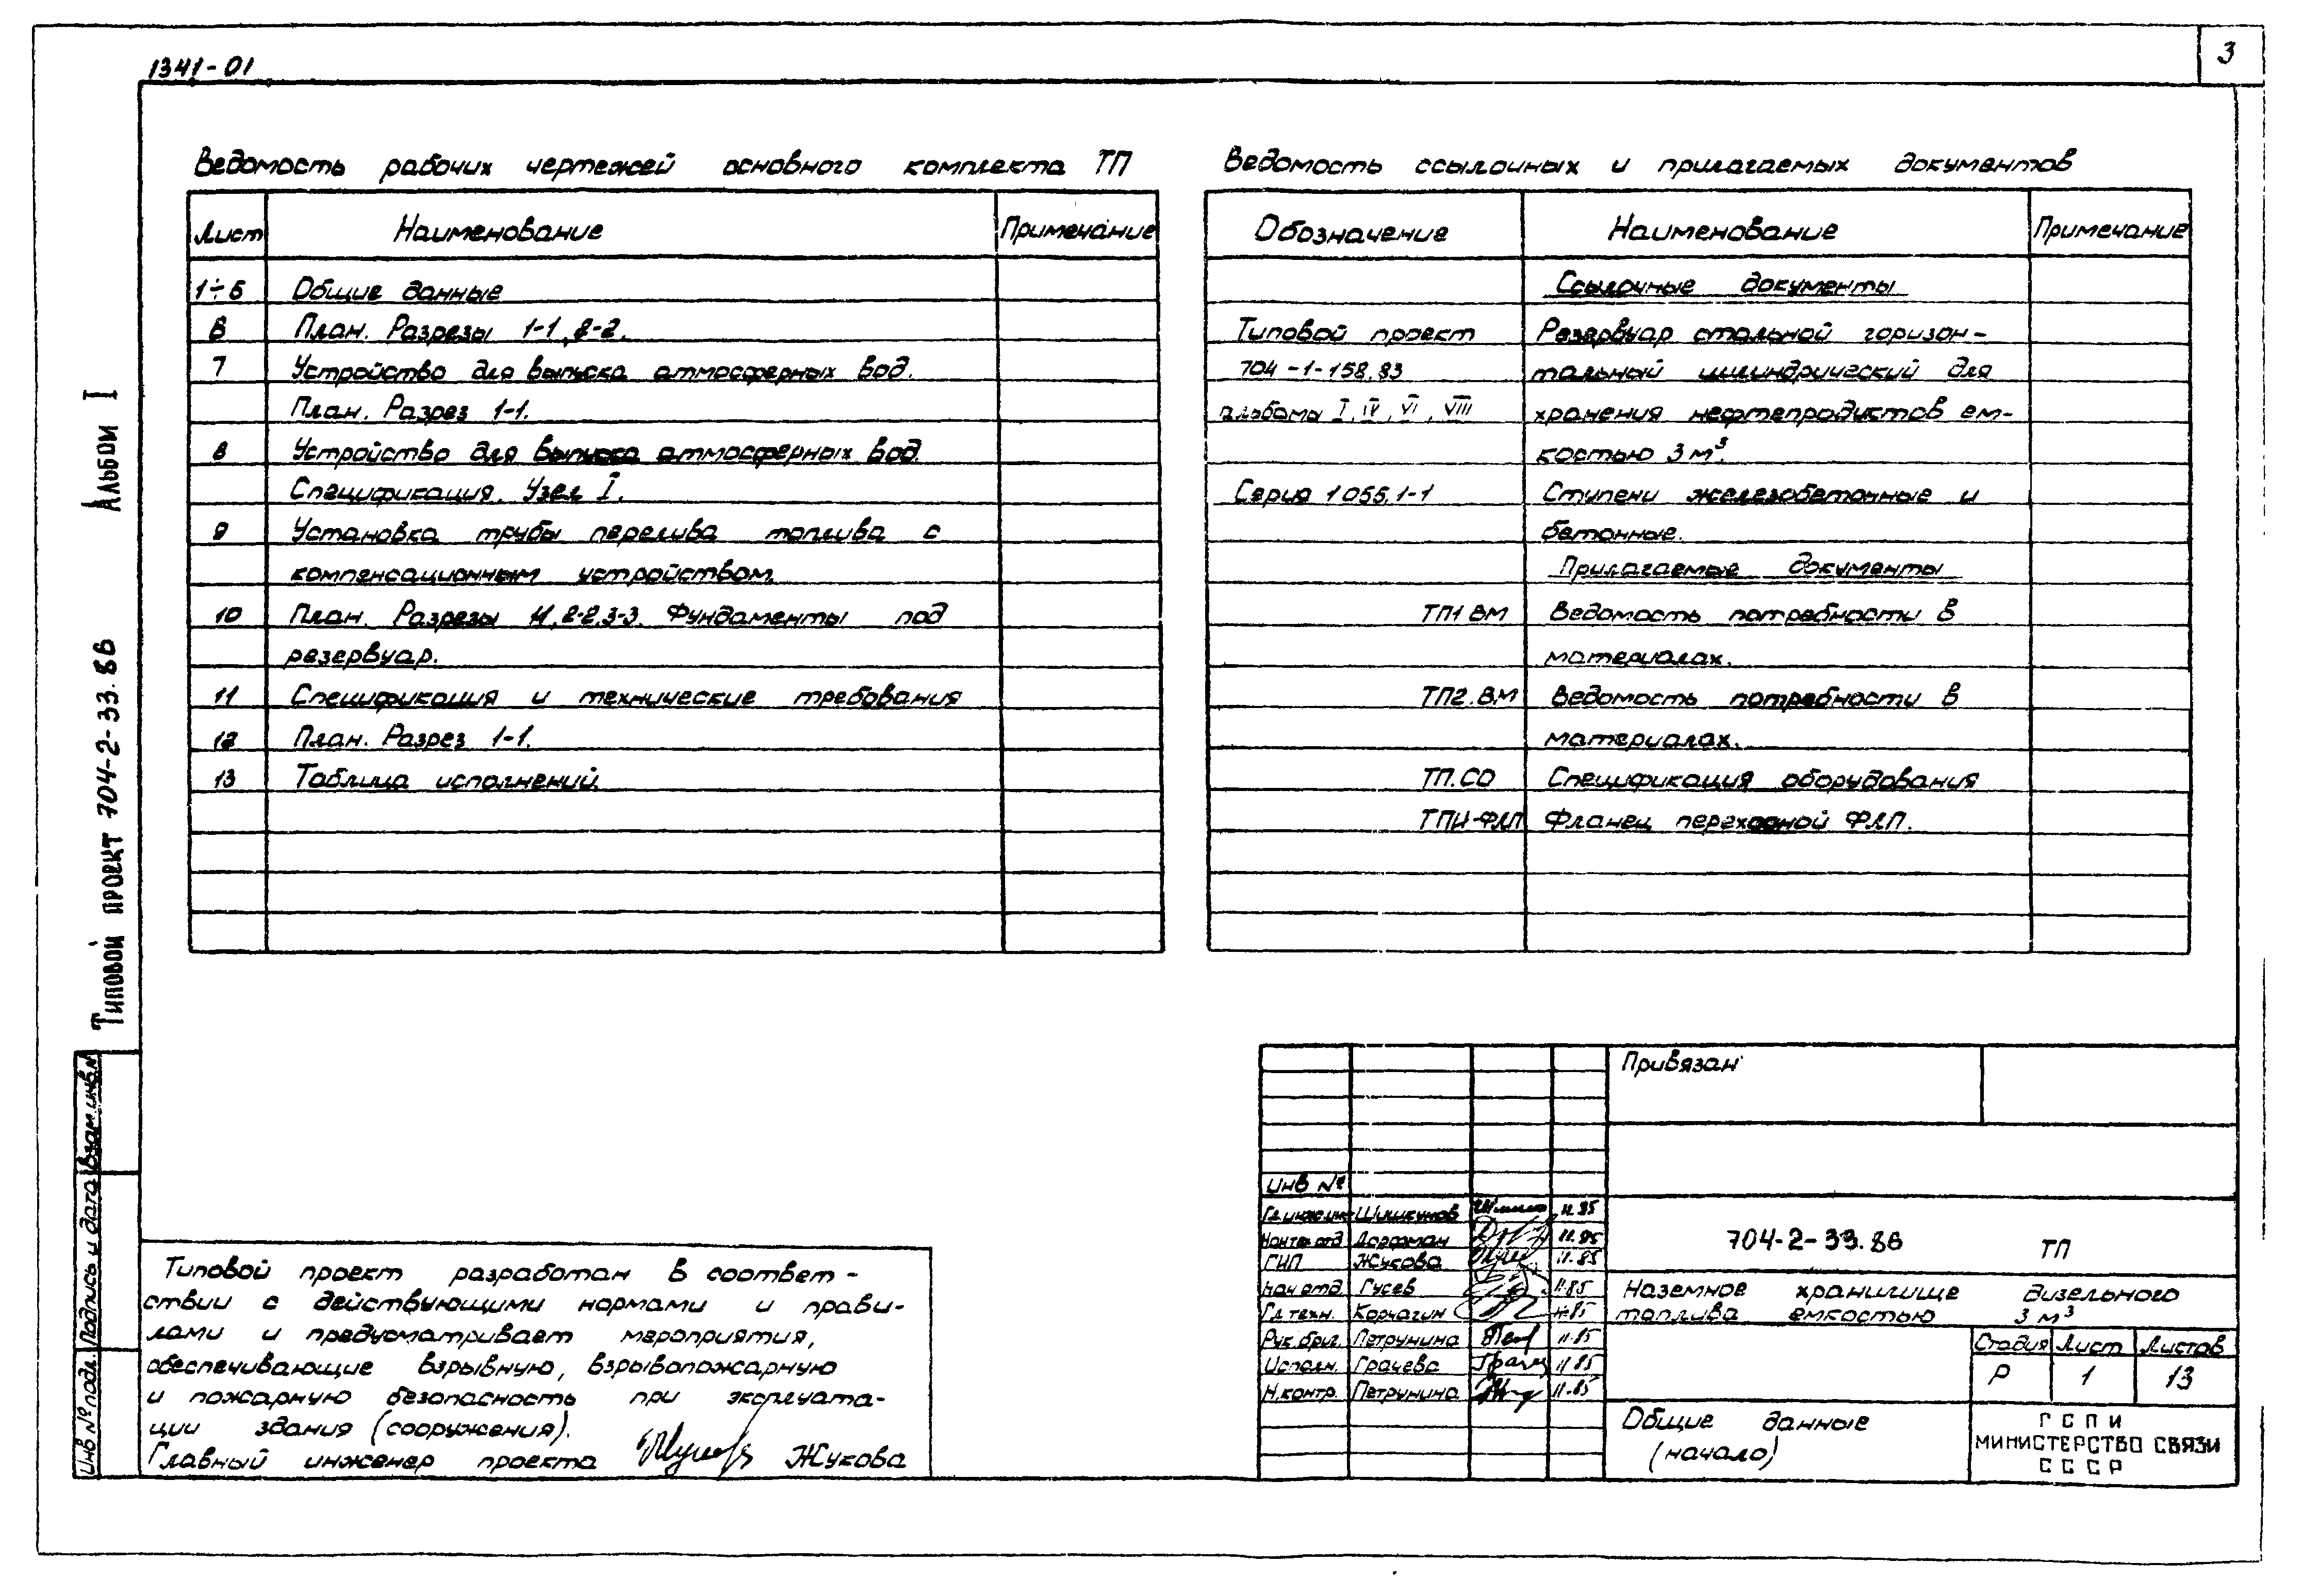 1341-01
3
Альбом I
Типовой проект 704-2-33.86
Ведомость рабочих чертежей основного комплекта ТП
Лист Наименование Примечание
1÷5 Общие данные
6 План. Разрезы 1-1, 2-2.
7 Устройство для выпуска атмосферных вод.
План. Разрез 1-1.
8 Устройство для выпуска атмосферных вод.
Спецификация. Узел I.
9 Установка трубы перелива топлива с
компенсационным устройством
10 План. Разрезы 1-1, 2-2, 3-3. Фундаменты под
резервуар.
11 Спецификация и технические требования
12 План. Разрез 1-1.
13 Таблица исполнений.
Ведомость ссылочных и прилагаемых документов
Обозначение Наименование Примечание
Ссылочные документы
Типовой проект Резервуар стальной горизон-
704-1-158.83 тальный цилиндрический для
альбомы I, IV, VI, VIII хранения нефтепродуктов ем-
костью 3 м³.
Серия 1.055.1-1 Ступени железобетонные и
бетонные.
Прилагаемые документы
ТП1.ВМ Ведомость потребности в
материалах.
ТП2.ВМ Ведомость потребности в
материалах.
ТП.СО Спецификация оборудования
ТПИ-ФЛП Фланец переходной ФЛП.
Инв № подл. Подпись и дата Взам.инв.№
Типовой проект разработан в соответ-
ствии с действующими нормами и прави-
лами и предусматривает мероприятия,
обеспечивающие взрывную, взрывопожарную
и пожарную безопасность при эксплуата-
ции здания (сооружения).
Главный инженер проекта Жукова
Привязан
инв №
Гл.инжен. Шишкунов 11.85
Дорфман 11.85
ГИП Жукова 11.85
Нач.отд. Гусев 11.85
Гл.техн. Корчагин 11.85
Рук.бриг. Петрунина 11.85
Исполн. Грачева 11.85
Н.контр. Петрунина 11.85
704-2-33.86 ТП
Наземное хранилище дизельного
топлива емкостью 3 м³
Стадия Лист Листов
Р 1 13
Общие данные
(начало)
ГСПИ
МИНИСТЕРСТВО СВЯЗИ
СССР